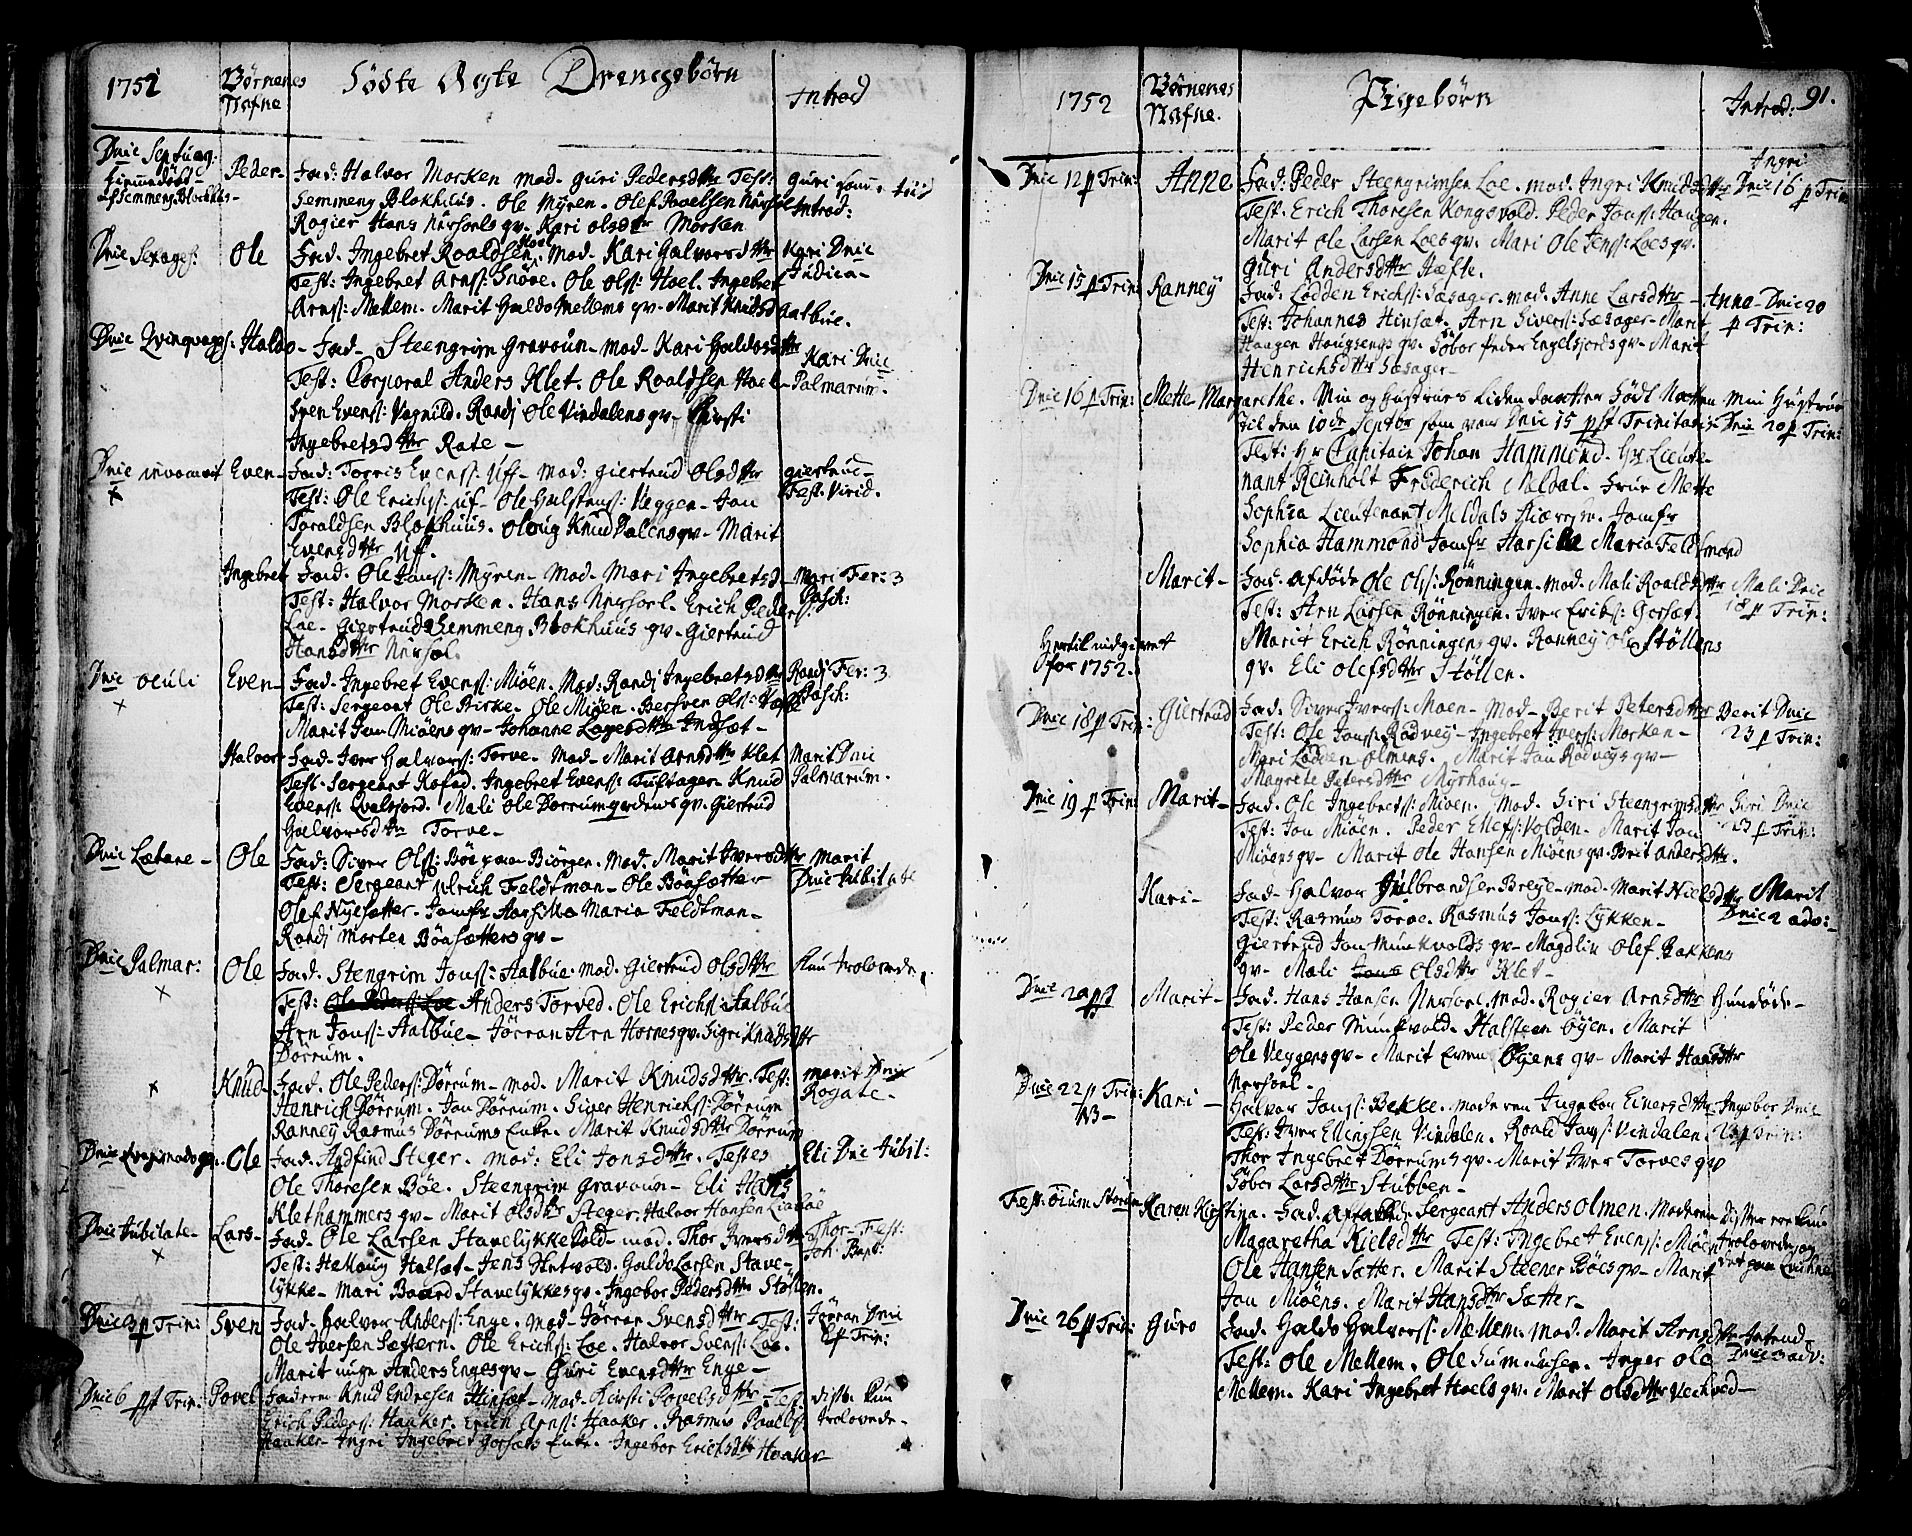 1752
Børnenes
Nafne
Födte Ægte Drengebörn
Introd
Dnic Septuag:
hiemmedöbt
af Hemmeng Blockhus
Peder-
Fad: Halvor Morken mod. guri Pedersdttr Test:
Hemmeng Blokhuus. Ole Myren. Olef Povelsen Nersoel
Rogier Hans Nersoels qv. Kari olsdttr Morken
guri samme tiid
Introd:
Dnic Sexages:
Ole
Fad. Ingebret Roaldsen Hoel. mod. Kari Halvorsdttr
Test: Ingebret Arnss: Snöve. Ole olss: Hoel. Ingebret
Arnss: Mellem. Marit Haldo Mellems qv. Marit Knudsd Aalbue.
Kari Dnic
Judica-
Dnic Qvinqvages: Haldo-
Fad- Steengrim Gravoun- mod- Kari Haldosdttr
Test: Corporal Anders Klet. Ole Roaldsen Hoel-
Sven Evenss: Vognild. Randj Ole Vindalens qv- Kirsti
Ingebretsdttr Rate-
Kari Dnic
Palmarum.
Dnic invocavit
Even-
Fad: Torris Evenss. Uff- mod: giertrud olsdttr
Test: Ole Erichss: Uf- Ole Halstenss: Veggen- Jon
Toraldsen Blokhuus. Oloug Knud Dalens qv- Marit
Evensdttr Uff.
giertrud-
Fest. Virid.
Ingebret
Fad. Ole Jonss: Myren- mod- Mari Ingebretsd-
Test: Halvor Morken. Hans Nersoel. Erich Peders:
Loe- Giertrud Hemmeng Blokhuus qv- Giertrud
Hansdttr Nersöl.
Mari Fer: 3
Pasch:
Dnic oculi
Even-
Fad- Ingebret Evenss: Miöen. Mod: Randj Ingebretsdttr
Test: Sergeant Ole Birke- Ole Miöen. Bersven Olss:
Marit Jon Miöens qv- Johanne Lagesdttr Indset-
Randj Fer: 3
Pasch:
Halvor
Fad- Iver Halvorss: Torve- Mod- Marit Arnsdttr Klet
Test- Sergeant Kofod. Ingebret Evenss: Tuftager- Knud
Evenss: Qvalsjord. Mali Ole Dörrumgardens qv- Giertrud
Halvorsdttr Torve-
Marit Dnic
Palmarum.
Dnic Lætare-
Ole
Fad: Siver Olss: Böe paa Biörgen. Mod. Marit Iversdttr
Test: Sergeant Ulrich Feldtman- Ole Böesætter
Olef Nyesætter. Jomfr Aarsille Maria Feldtman-
Randj Morten Böesætters qv-
Marit
Dnic Jubilate
Dnic Palmar:
Ole
Fad. Stengrim Jonss: Aalbue. mod. Giertrud Olsdttr
Test: Ole Pederss: Loe Anders Torved. Ole Erichss: Aalbue
Arn Jonss: Aalbue- Jörran Arn Hornes qv- Sigri Knudsdttr
Dörrum.
Kun trolovede.
Knud-
Fad. Ole Pederss: Dörrum- mod. Marit Knudsdttr. Test:
Henrich Dörrum. Jon Dörrum. Siger Henrichss: Dörrum
Ranney Rasmus Dörrums Enke. Marit Knudsdttr Dörrum
marit Dnic
Rogate-
Ole
Fad. Andfind Steger. mod: Eli Jonsdttr. Testes
Ole Thoresen Böe. Steengrim Gravoun- Eli Hans
Klethammers qv- Marit olsdttr Steger. Halvor Hansen
Eli Dnic Jubil:
Dnic Jubilate-
Lars-
Fad- Ole Larsen Stavelykkevold- mod. Thor Iversdttr
Test: Helloug Halset- Jens Hetvold. Haldo Larsen Stave-
lykke- Mari Baard Stavelykkes qv. Ingebor Pedersdttr Stöllen.
Thor- Fest:
Joh: Bapt:
Dnic 3 p Trin:
Sven
Fad- Halvor Anderss: Enge. mod- Jörran Svensdttr Test:
Ole Iversen Sættern. Ole Erichss: Loe. Halvor Svenss: Loe.
Marit unge Anders Enges qv- Guri Evensdttr Enge-
Jörran Dnic
p Trin:
Dnic 6 pst Trin:
Povel
Faderen Knud Endresen Hinset- Mod- Kirsti Povelsdttr- Test.
Erich Pederss: Haaker. Erich Arnss: Haaker. Rasmus Povelss:
Haaker- Ingri Ingebret Gorsets Enke. Ingebor Erichsdttr Haaker-
disse kun
trolovede-
1752
Börnenes
Nafne.
Pigebörn
Introd:
91.
Dnic 12 p Trin:
Anne
Fad: Peder Steengrimsen Loe. mod. Ingri Knudsdttr
Test. Erich Thoresen Kongsvold. Peder Jonss: Haugen.
Marit Ole Larsen Loes qv. Mari Ole Jenss: Loes qv.
guri Andersdttr Hæfte.
Ingri
Dnic 16 p Trin
Dnic 15 p Trin:
Ranney
Fad: Lodden Erichss: Sæsager. mod. Anne Larsdttr-
Test: Johannes Hinset- Arn Siverss: Sæsager- Marit
Haagen Hougsengs qv. Söbor Peder Engelsjords qv- Marit
Henrichsdttr Sæsager-
Anna- Dnic 20
p Trin:
Dnic 16 p Trin:
Mette Margarethe.
Min og Hustrues liden daatter födt Natten
til den 10de Septbr som var Dnic 15 pst Trinitatis-
Test: Hr Capitain Johan Hammond. Hr Lieute-
nant Reinholt Friderich Meldal. Frue Mette
Sophia Lieutenant Meldals Kiæreste. Jomfr
Sophia Hammond Jomfr Aarsille Maria Feldtmond
Min Hustrue
Dnic 20 p Trin:
Marit-
Fad- afdöde Ole Olss: Rönningen. mod. Mali Roaldsdttr
Test: Arn Larsen Rönningen. Iver Erichss: Gorset.
Marit Erich Rönningens qv. Ranney Ole Stöllens
qv. Eli Olefsdttr Stöllen.
Mali Dnic
18 p Trin:
Hertil indgivet
for 1752.
Dnic 18 p Trin:
Giertrud
Fad. Siver Iverss: Moen- Mod- Berit Petersdttr
Test: Ole Jonss: Rödvey- Ingebret Iverss: Morken-
Mari Lödden Olmens. Marit Jon Rödveys qv-
Magrete Petersdttr Myrhaug-
Berit Dnic
23 p Trin:
Dnic 19 p Trin:
Marit-
Fad. Ole Ingebretss: Miöen. Mod. Siri Steengrimsdttr
Test: Jon Miöen. Peder Ellefs: Volden- Marit Jon
Miöens qv- Marit Ole Hansen Miöens qv. Brit Andersdttr.
Siri Dnic
23 p Trin:
Kari-
Fad- Halvor Gulbrandsen Breye- mod- Marit Nielsdttr
Test: Rasmus Torve. Rasmus Jonss: Lykken-
Giertrud Jon Munkvolds qv- Magdlin Olef Bakkens
qv- Mali Jons Olsdttr Klet-
Marit
Dnic 2 adv:
Dnic 20 pst
Marit-
Fad. Hans Hansen Nersoel. mod. Rogier Arnsdttr
Test: Peder Munkvold. Halsteen Öyen. Marit
Ole Veggens qv- Marit Even Öyens qv- Marit Hansdttr
Nersoel-
Hundöde-
Dnic 22 p Trin:
NB-
Kari-
Halvor Jonss: Bekke. Moderen Ingebor Einersdttr
Test: Iver Ellingsen Vindalen. Roald Jonss: Vindalen.
Thor Ingebret Dörrums qv- Marit Iver Torves qv
Söbor Larsdttr Stubben-
Ingebor Dnic
p Trin:
Fest. öium Storum
Karen Kirstina.
Fad. Sergeant Anders Olmen. Moderen
Magaretha Kielsdttr Test: Ingebret Evenss: Miöen
Ole Hansen Sætter. Marit Steener Böes qv- Marit
Jon Miöens. Marit Hansdttr Sætter-
Disse vare kun
trolovede og
Dnic 26 p Trin:
Guro
Fad. Haldo Halvorss: Mellem. mod. Marit Arnsdttr
Test: Ole Mellem. Ole Gumunsen. Inger Ole
Mellem. Kari Ingebret Hoels qv. Marit Olsdttr Vechved-
Introd-
Dnic 3 adv: